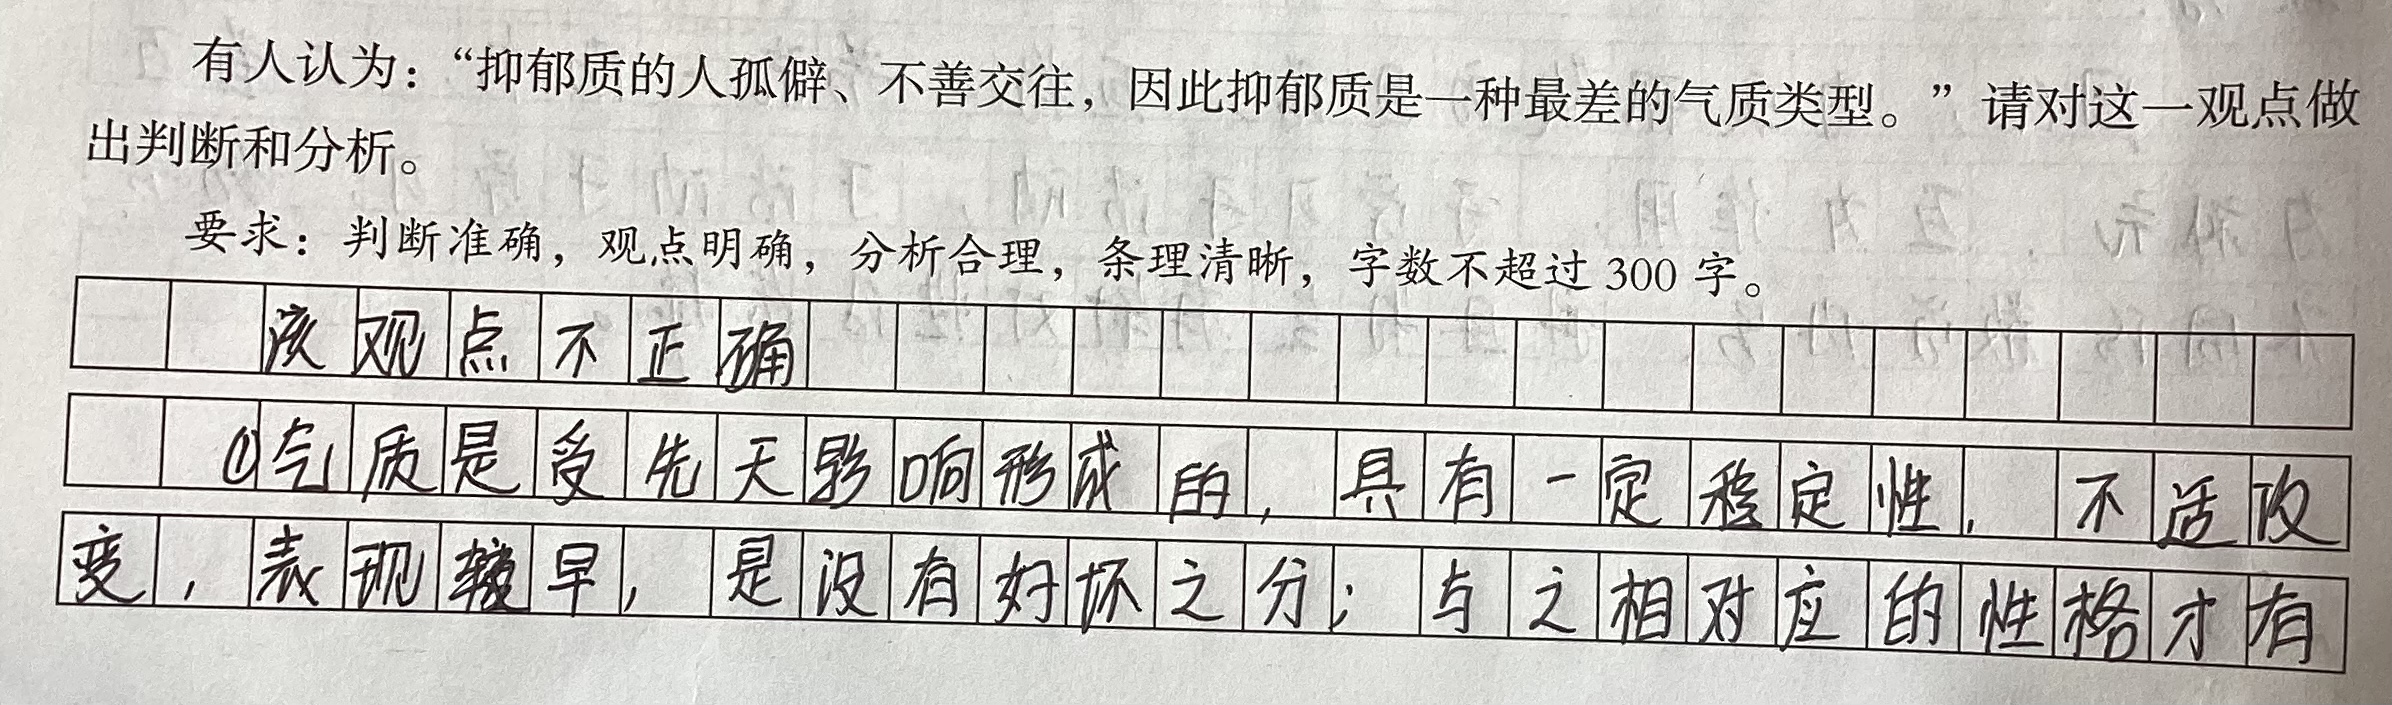 有人认为：“抑郁质的人孤僻、不善交往，因此抑郁质是一种最差的气质类型。”请对这一观点做
出判断和分析。
要求：判断准确，观点明确，分析合理，条理清晰，字数不超过 300 字。
该观点不正确
①气质是受先天影响形成的，具有一定稳定性，不适改
变，表现较早，是没有好坏之分；与之相对应的性格才有